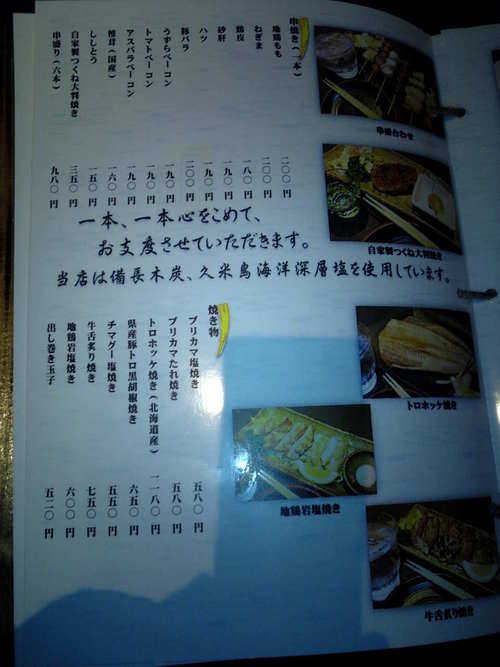 串焼き（一本）
地鶏もも 二〇〇円
ねぎま 二〇〇円
鶏皮 一八〇円
砂肝 一九〇円
ハツ 一九〇円
豚バラ 二〇〇円
うずらベーコン 一九〇円
トマトベーコン 一九〇円
アスパラベーコン 一九〇円
椎茸（国産） 一六〇円
ししとう 一五〇円
自家製つくね大判焼き 三五〇円
串盛り（六本） 九八〇円
串盛合わせ
自家製つくね大判焼き
一本、一本心をこめて、
お支度させていただきます。
当店は備長木炭、久米島海洋深層塩を使用しています。
焼き物
ブリカマ塩焼き 五八〇円
ブリカマたれ焼き 五八〇円
トロホッケ焼き（北海道産） 一一八〇円
県産豚トロ黒胡椒焼き 六五〇円
チマグー塩焼き 五五〇円
牛舌炙り焼き 七五〇円
地鶏岩塩焼き 六〇〇円
出し巻き玉子 五二〇円
トロホッケ焼き
地鶏岩塩焼き
牛舌炙り焼き